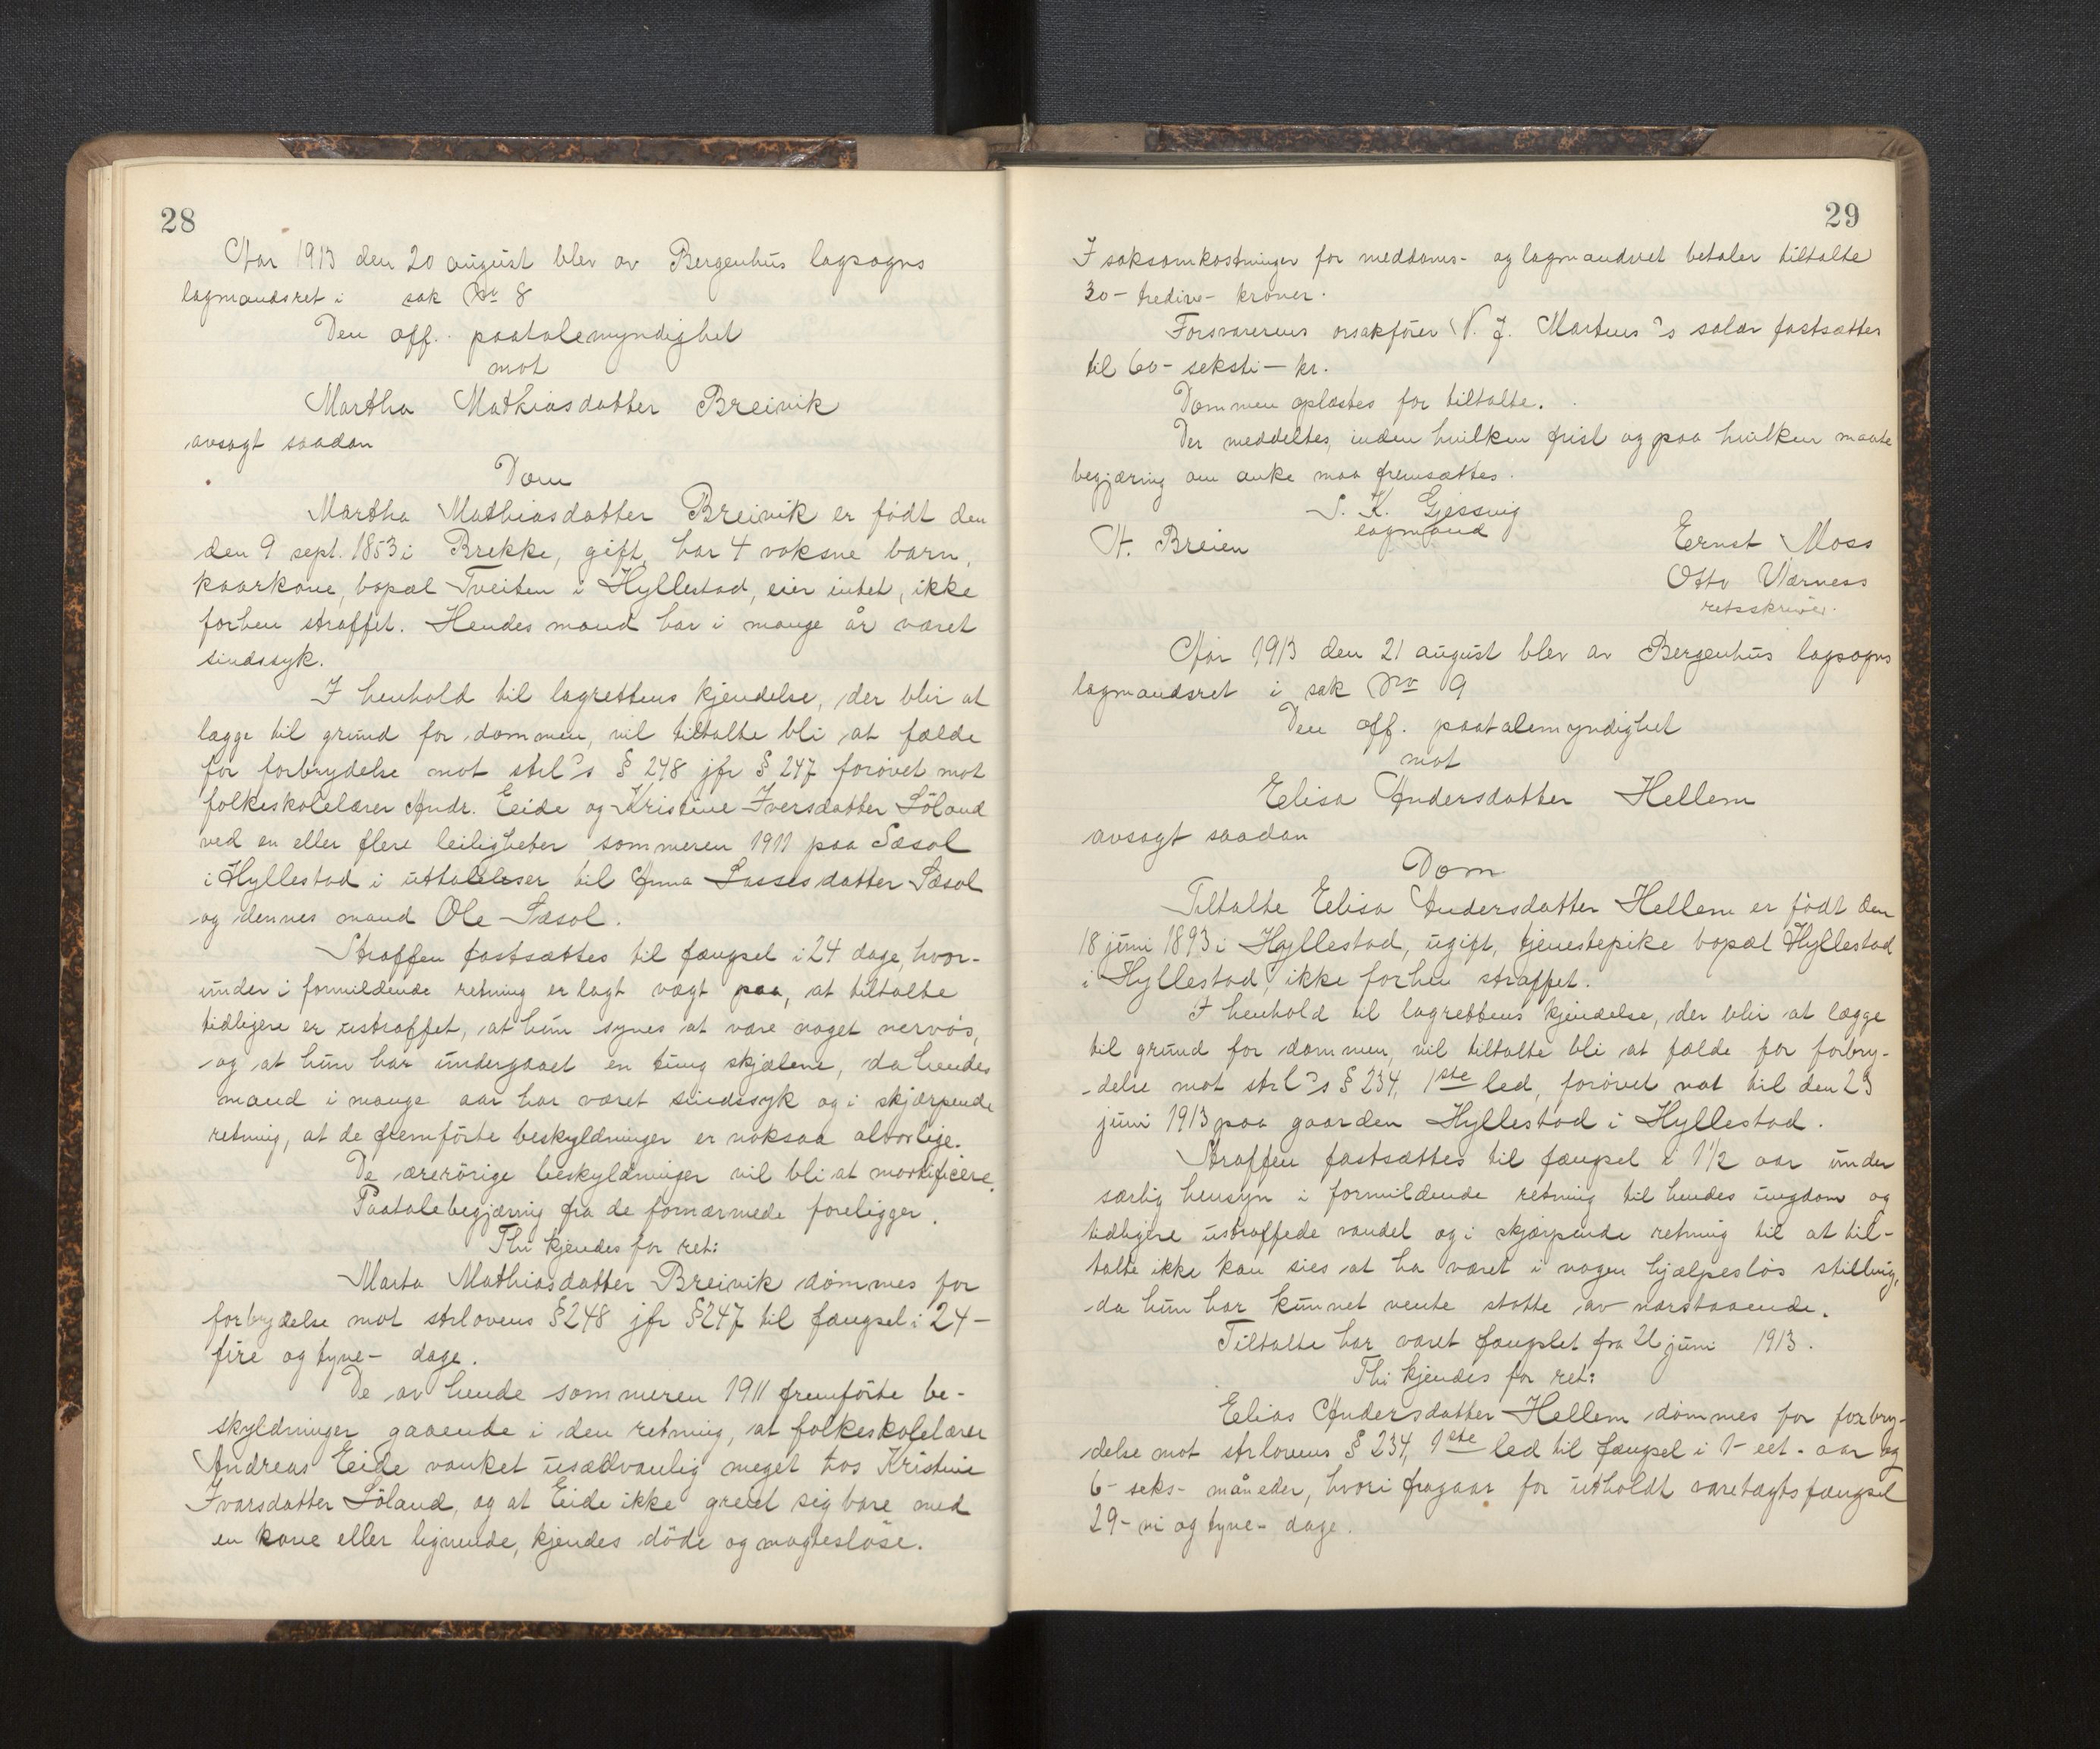 28
Aar 1913 den 20 august blev av Bergenhus lagsogns
lagmandsret i sak No 8
Den off. paatalemyndighet
mot
Martha Mathiasdatter Breivik
avsagt saadan
Dom
Martha Mathiasdatter Breivik er født den
den 9 sept. 1853 i Brekke, gift, har 4 voksne barn,
kaarkone, bopæl Tveiten i Hyllestad, eier intet, ikke
forhen straffet. Hendes mand har i mange år været
sindssyk.
I henhold til lagrettens kjendelse, der blir at
lægge til grund for dommen, vil tiltalte bli at fælde
for forbrydelse mot strl's § 248 jfr § 247 forøvet mot
folkeskolelærer Andr. Eide og Kristine Iversdatter Söland
ved en eller flere leiligheter sommeren 1911 paa Sæsol
i Hyllestad i uttalelser til Anna Lassesdatter Sæsol
og dennes mand Ole Sæsol.
Straffen fastsættes til fængsel i 24 dage, hvor-
under i formildende retning er lagt vægt paa, at tiltalte
tidligere er ustraffet, at hun synes at være noget nervøs,
og at hun har undergaaet en tung skjæbne, da hendes
mand i mange aar har været sindssyk og i skjærpende
retning, at de fremförte beskyldninger er noksaa alvorlige.
De ærerörige beskyldninger vil bli at mortificere.
Paatalebegjæring fra de fornærmede foreligger.
Thi kjendes for ret:
Marta Mathiasdatter Breivik dømmes for
forbrydelse mot strlovens § 248 jfr § 247 til fængsel i 24-
fire og tyve- dage.
De av hende sommeren 1911 fremförte be-
skyldninger gaaende i den retning, at folkeskolelærer
Andreas Eide vanket usædvanlig meget hos Kristine
Ivarsdatter Söland, og at Eide ikke greiet sig bare med
en kone eller lignende, kjendes döde og magteslöse.
29
I saksomkostninger for meddoms- og lagmandsret betaler tiltalte
30- tredive- kroner.
Forsvarerens orsakfører N. J. Martens's salær fastsættes
til 60- seksti- kr.
Dommen oplæstes for tiltalte.
Der meddeltes, inden hvilken frist og paa hvilken maate
begjæring om anke maa fremsættes.
S. K. Gjessing
lagmand
H. Breien
Ernst Moss
Otto Værness
retsskriver.
Aar 1913 den 21 august blev av Bergenhus lagsogns
lagmandsret i sak No 9
Den off. paatalemyndighet
mot
Elisa Andersdatter Hellem
avsagt saadan
Dom
Tiltalte Elisa Andersdatter Hellem er født den
18 juni 1893 i Hyllestad, ugift, tjenestepike bopæl Hyllestad
i Hyllestad, ikke forhen straffet.
I henhold til lagrettens kjendelse, der blir at lægge
til grund for dommen, vil tiltalte bli at fælde for forbry-
-delse mot strl's § 234, 1ste led, forøvet nat til den 23
juni 1913 paa gaarden Hyllestad i Hyllestad.
Straffen fastsættes til fængsel i 1 1/2 aar under
særlig hensyn i formildende retning til hendes ungdom og
tidligere ustraffede vandel og i skjærpende retning til at til-
talte ikke kan sies at ha været i nogen hjælpeslös stilling,
da hun har kunnet vente støtte av nærstaaende.
Tiltalte har været fængslet fra 26 juni 1913.
Thi kjendes for ret:
Elias Andersdatter Hellem dømmes for forbry-
delse mot strlovens § 234, 1ste led til fængsel i 1- eet- aar og
6- seks- måneder, hvori fragaar for utholdt varetægtsfængsel
29- ni og tyve- dage.